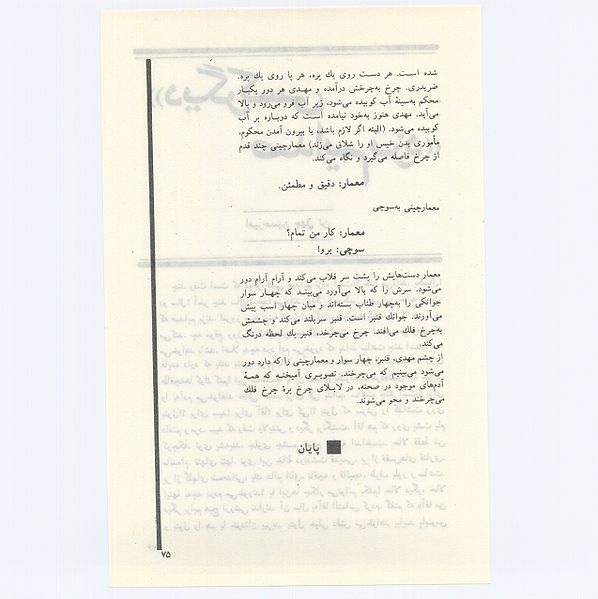 شده است. هر دست روی یك پره، هر پا روی یك پره.
ضربدری. چرخ به‌چرخش درآمده و مهدی هر دور یکبار
محکم به‌سینهٔ آب کوبیده می‌شود، زیر آب فرو می‌رود و بالا
می‌آید. مهدی هنوز به‌خود نیامده است که دوباره بر آب
کوبیده می‌شود. (البته اگر لازم باشد، با بیرون آمدن محکوم،
مأموری بدن خیس او را شلاق می‌زند) معمارچینی چند قدم
از چرخ فاصله می‌گیرد و نگاه می‌کند.
معمار: دقیق و مطمئن.
معمارچینی به‌سوچی
معمار: کار من تمام؟
سوچی: برو!
معمار دست‌هایش را پشت سر قلاب می‌کند و آرام آرام دور
می‌شود. سرش را که بالا می‌آورد می‌بیند که چهار سوار
جوانکی را به‌چهار طناب بسته‌اند و میان چهار اسب پیش
می‌آورند. جوانك قنبر است. قنبر سربلند می‌کند و چشمش
به‌چرخ فلك می‌افتد. چرخ می‌چرخد، قنبر یك لحظه درنگ
می‌کند.
از چشم مهدی، قنبر، چهار سوار و معمارچینی را که دارد دور
می‌شود می‌بینیم که می‌چرخند. تصویری آمیخته که همهٔ
آدم‌های موجود در صحنه، در لابلای چرخ پرهٔ چرخ فلك
می‌چرخند و محو می‌شوند.
پایان
۷۵